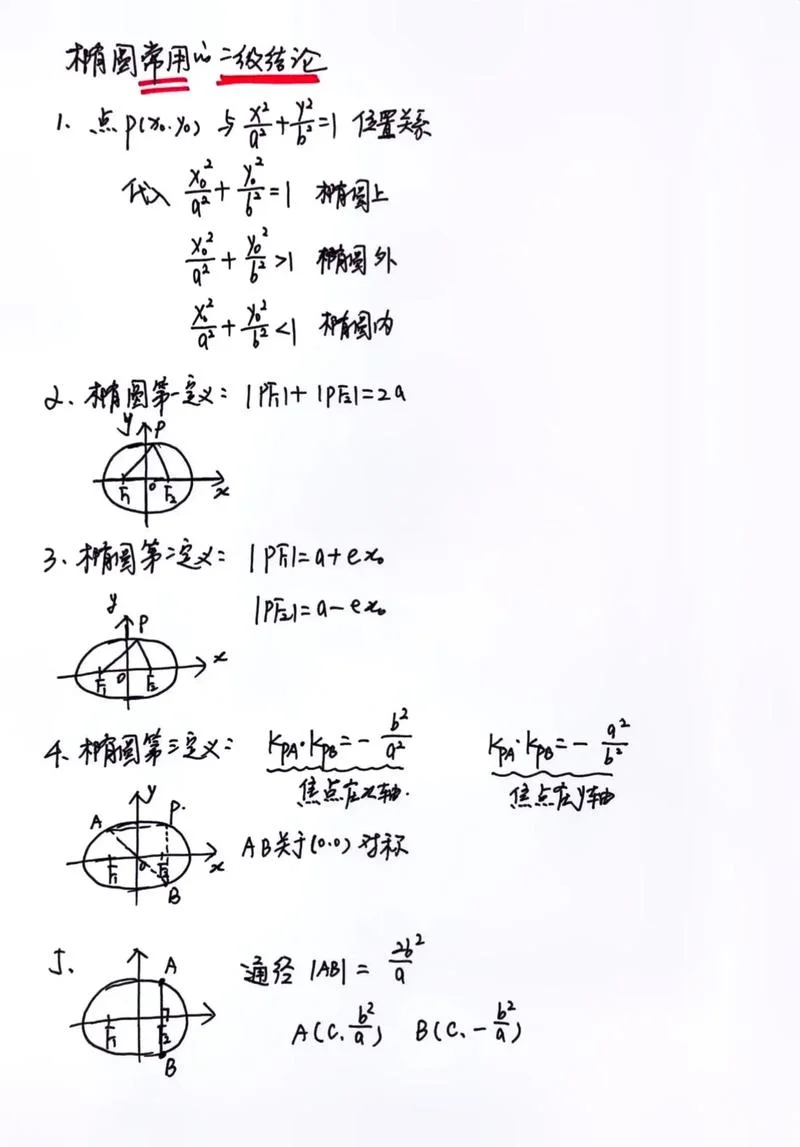 椭圆常用的二级结论
1、点P(x₀,y₀)与x²/a²+y²/b²=1位置关系
代入 x₀²/a²+y₀²/b²=1 椭圆上
x₀²/a²+y₀²/b²>1 椭圆外
x₀²/a²+y₀²/b²<1 椭圆内
2、椭圆第一定义：|PF₁|+|PF₂|=2a
y P
F₁ O F₂ x
3、椭圆第二定义：|PF₁|=a+ex₀
|PF₂|=a-ex₀
y P
F₁ O F₂ x
4、椭圆第三定义：K_PA·K_PB=-b²/a² K_PA·K_PB=-a²/b²
焦点在x轴. 焦点在y轴
A y P.
F₁ O F₂ x
B
AB关于(0.0)对称
5、 A 通径|AB|=2b²/a
F₁ F₂ A(C,b²/a) B(C,-b²/a)
B